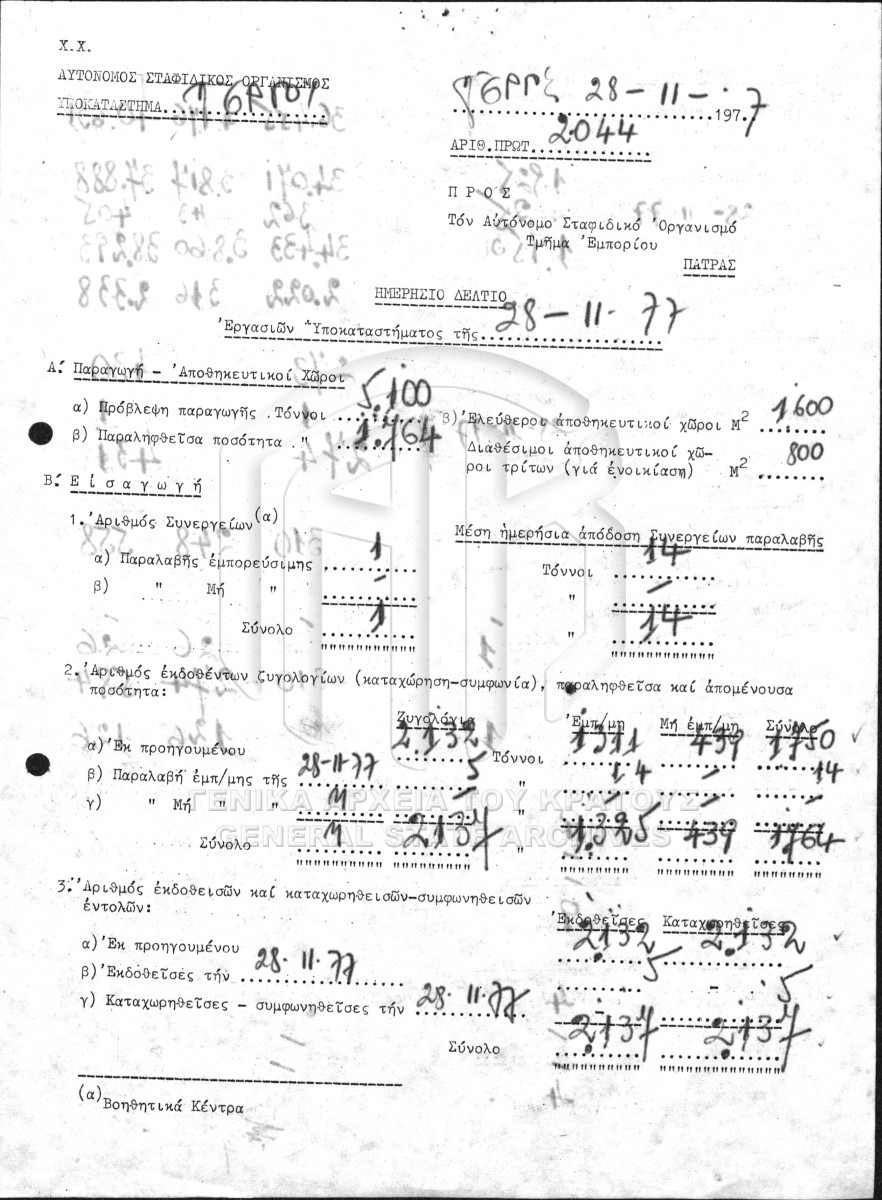 Χ.Χ.
ΑΥΤΟΝΟΜΟΣ ΣΤΑΦΙΔΙΚΟΣ ΟΡΓΑΝΙΣΜΟΣ
ΥΠΟΚΑΤΑΣΤΗΜΑ
28-11-1977
ΑΡΙΘ.ΠΡΩΤ. 2044
ΠΡΟΣ
Τόν Αὐτόνομο Σταφιδικό Ὀργανισμό
Τμῆμα Ἐμπορίου
ΠΑΤΡΑΣ
ΗΜΕΡΗΣΙΟ ΔΕΛΤΙΟ
Ἐργασιῶν Ὑποκαταστήματος τῆς 28-11-77
Α. Παραγωγή - Ἀποθηκευτικοί Χῶροι
α) Πρόβλεψη παραγωγῆς . Τόννοι 5.100 β) Ἐλεύθεροι ἀποθηκευτικοί χῶροι Μ2 1600
β) Παραληφθεῖσα ποσότητα " 1.764 Διαθέσιμοι ἀποθηκευτικοί χῶ-
ροι τρίτων (γιά ἐνοικίαση) Μ2 800
Β. Εἰσαγωγή
1. Ἀριθμός Συνεργείων (α) Μέση ἡμερήσια ἀπόδοση Συνεργείων παραλαβῆς
α) Παραλαβῆς ἐμπορεύσιμης 1 Τόννοι 14
β) " Μή " - " -
Σύνολο 1 " 14
2. Ἀριθμός ἐκδοθέντων ζυγολογίων (καταχώρηση-συμφωνία), παραληφθεῖσα καί ἀπομένουσα
ποσότητα:
Ζυγολόγια Ἐμπ/μη Μή ἐμπ/μη Σύνολο
α) Ἐκ προηγουμένου 2.132 Τόννοι 1311 439 1750
β) Παραλαβή ἐμπ/μης τῆς 28-11-77 5 " 14 - 14
γ) " Μή " " " - " - - -
Σύνολο " 2137 " 1.325 439 1764
3. Ἀριθμός ἐκδοθεισῶν καί καταχωρηθεισῶν-συμφωνηθεισῶν
ἐντολῶν:
Ἐκδοθεῖσες Καταχωρηθεῖσες
α) Ἐκ προηγουμένου 2.132 2.132
β) Ἐκδοθεῖσες τήν 28.11.77 5
γ) Καταχωρηθεῖσες - συμφωνηθεῖσες τήν 28.11.77 - 5
Σύνολο 2.137 2.137
(α) Βοηθητικά Κέντρα
ΓΕΝΙΚΑ ΑΡΧΕΙΑ ΤΟΥ ΚΡΑΤΟΥΣ
GENERAL STATE ARCHIVES